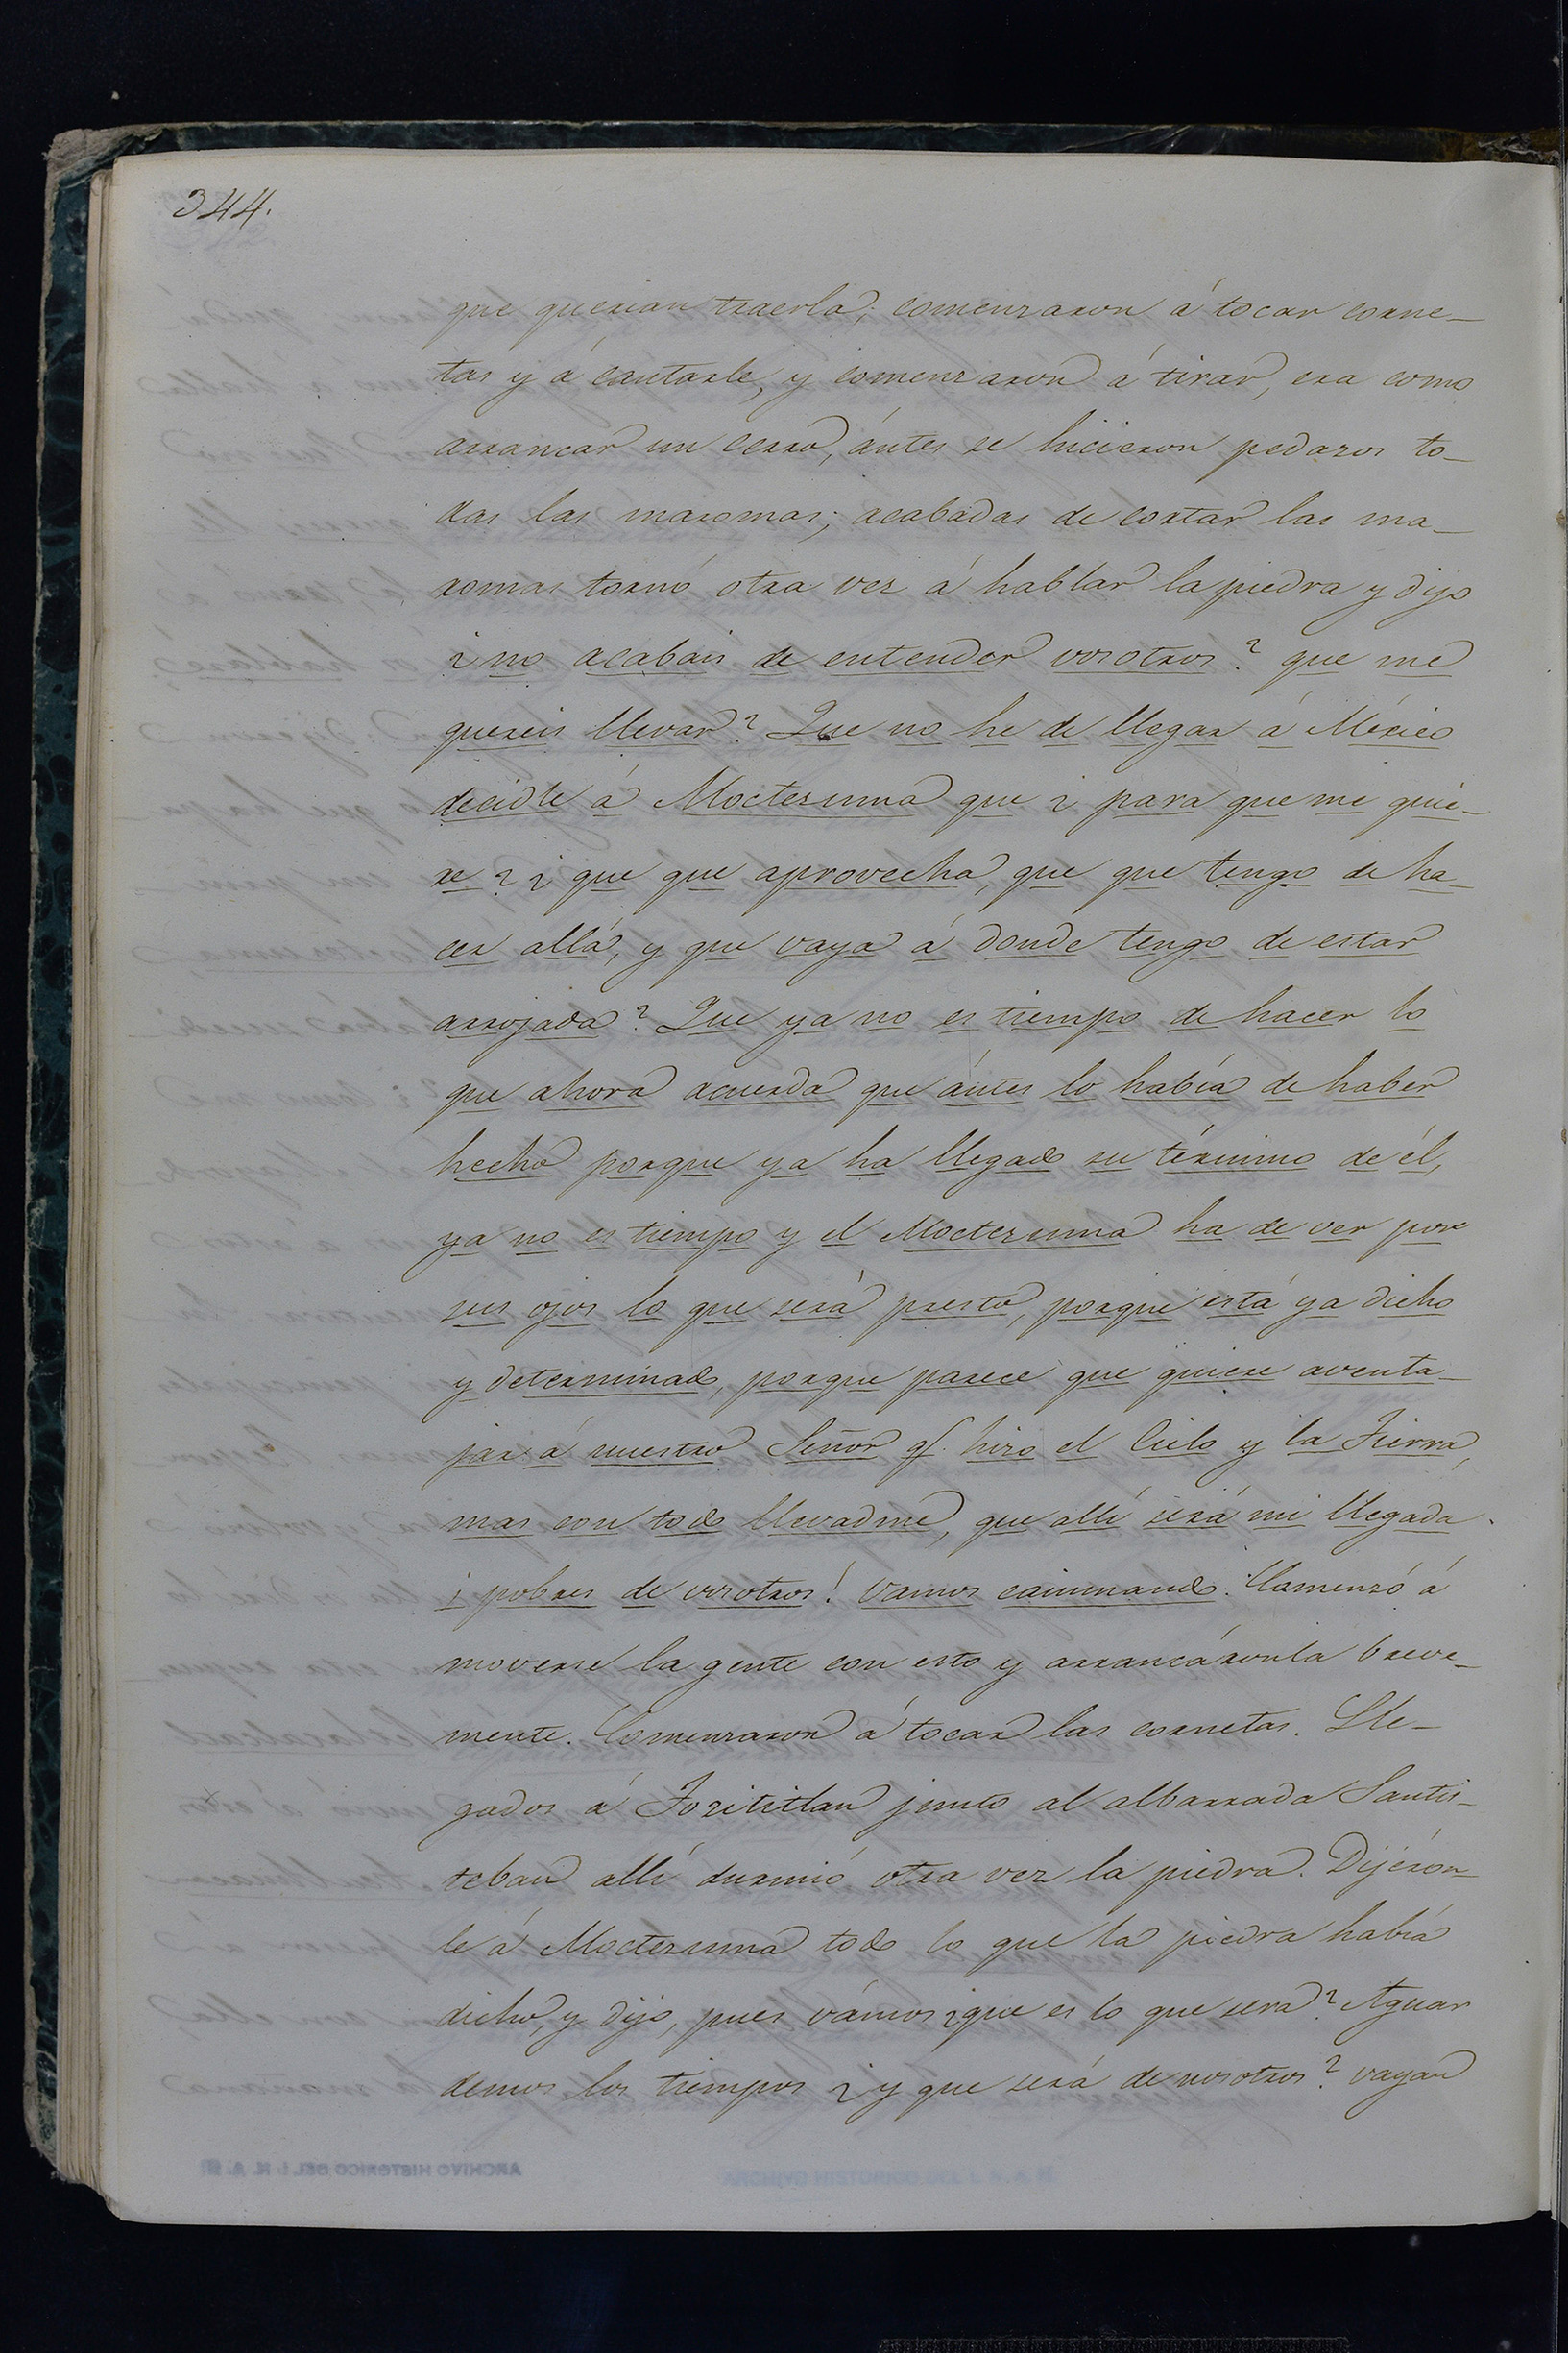 344.
que querian traerla; comenzaron á tocar corne-
tas y á cantarle, y comenzaron á tirar, era como
arrancar un cerro, ántes se hicieron pedazos to-
das las maromas; acabadas de cortar las ma-
romas tornó otra vez á hablar la piedra y dijo
¿no acabais de entender vosotros? que me
quereis llevar? Que no he de llegar á México
decidle á Moctezuma que ¿para que me quie-
re? ¿que que aprovecha, que que tengo de ha-
cer allá, y que vaya á donde tengo de estar
arrojada? Que ya no es tiempo de hacer lo
que ahora acuerda que ántes lo había de haber
hecho porque ya ha llegado su término de él,
ya no es tiempo y el Moctezuma ha de ver por
sus ojos lo que será presto, porque está ya dicho
y determinado, porque parece que quiere aventa-
jar á nuestro Señor q. hizo el Cielo y la Tierra,
mas con todo llevadme, que allí será mi llegada.
¡pobres de vosotros! vamos caminando. Comenzó á
moverse la gente con esto y arrancáronla breve-
mente. Comenzaron á tocar las cornetas. Lle-
gados á Tozititlan junto al albarrada Santis-
teban allí durmió otra vez la piedra. Dijéron-
le á Moctezuma todo lo que la piedra había
dicho, y dijo, pues vámos ¿que es lo que será? Aguar
demos los tiempos ¿y que será de nosotros? vayan
ARCHIVO HISTORICO DEL I. N. A. H.